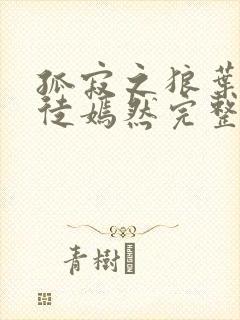 孤寂之狼葉
徒嫣然完整
青樹